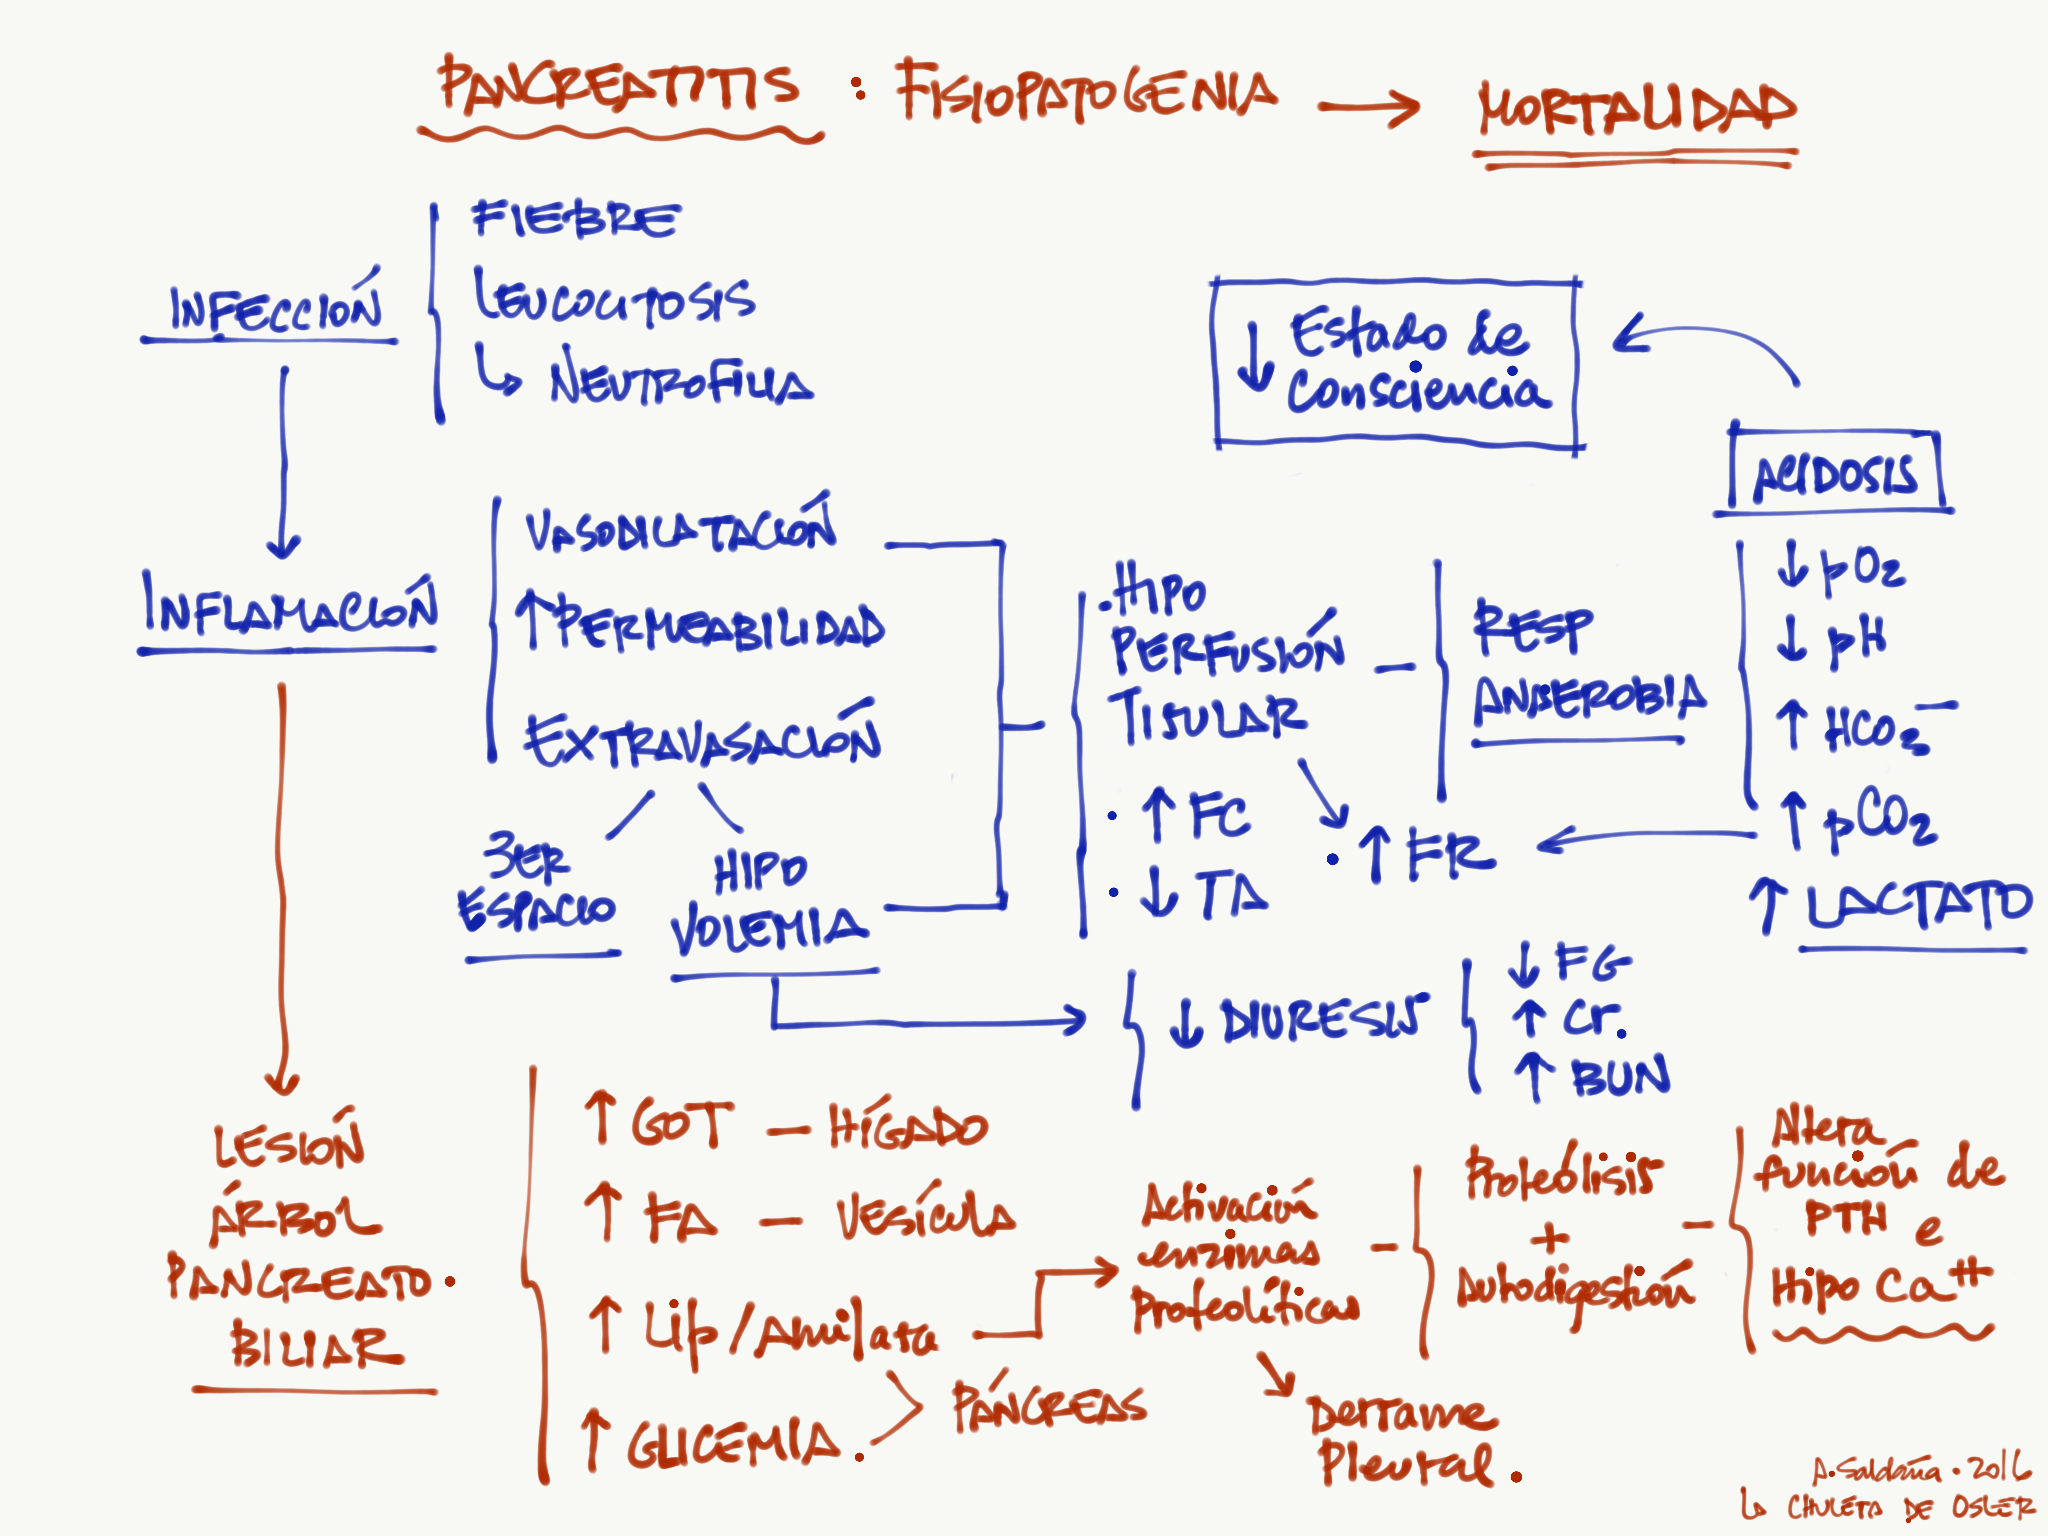 PANCREATITIS : FISIOPATOGENIA → MORTALIDAD
INFECCIÓN
FIEBRE
LEUCOCITOSIS
↳ NEUTROFILIA
↓ Estado de
Consciencia
ACIDOSIS
↓ pO2
↓ pH
↑ HCO3⁻
↑ pCO2
↑ LACTATO
INFLAMACIÓN
VASODILATACIÓN
↑ PERMEABILIDAD
EXTRAVASACIÓN
3ER
ESPACIO
HIPO
VOLEMIA
. HIPO
PERFUSIÓN
TISULAR
· ↑ FC
· ↓ TA
RESP
ANAEROBIA
· ↑ FR
↓ DIURESIS
↓ FG
↑ Cr.
↑ BUN
LESIÓN
ÁRBOL
PANCREATO.
BILIAR
↑ GOT — HÍGADO
↑ FA — VESÍCULA
↑ Lip/Amilasa
↑ GLICEMIA.
PÁNCREAS
Activación
enzimas
Proteolíticas
Proteólisis
+
Autodigestión
Altera
función de
PTH e
Hipo Ca++
Derrame
Pleural.
A. Saldaña · 2016
LA CHULETA DE OSLER